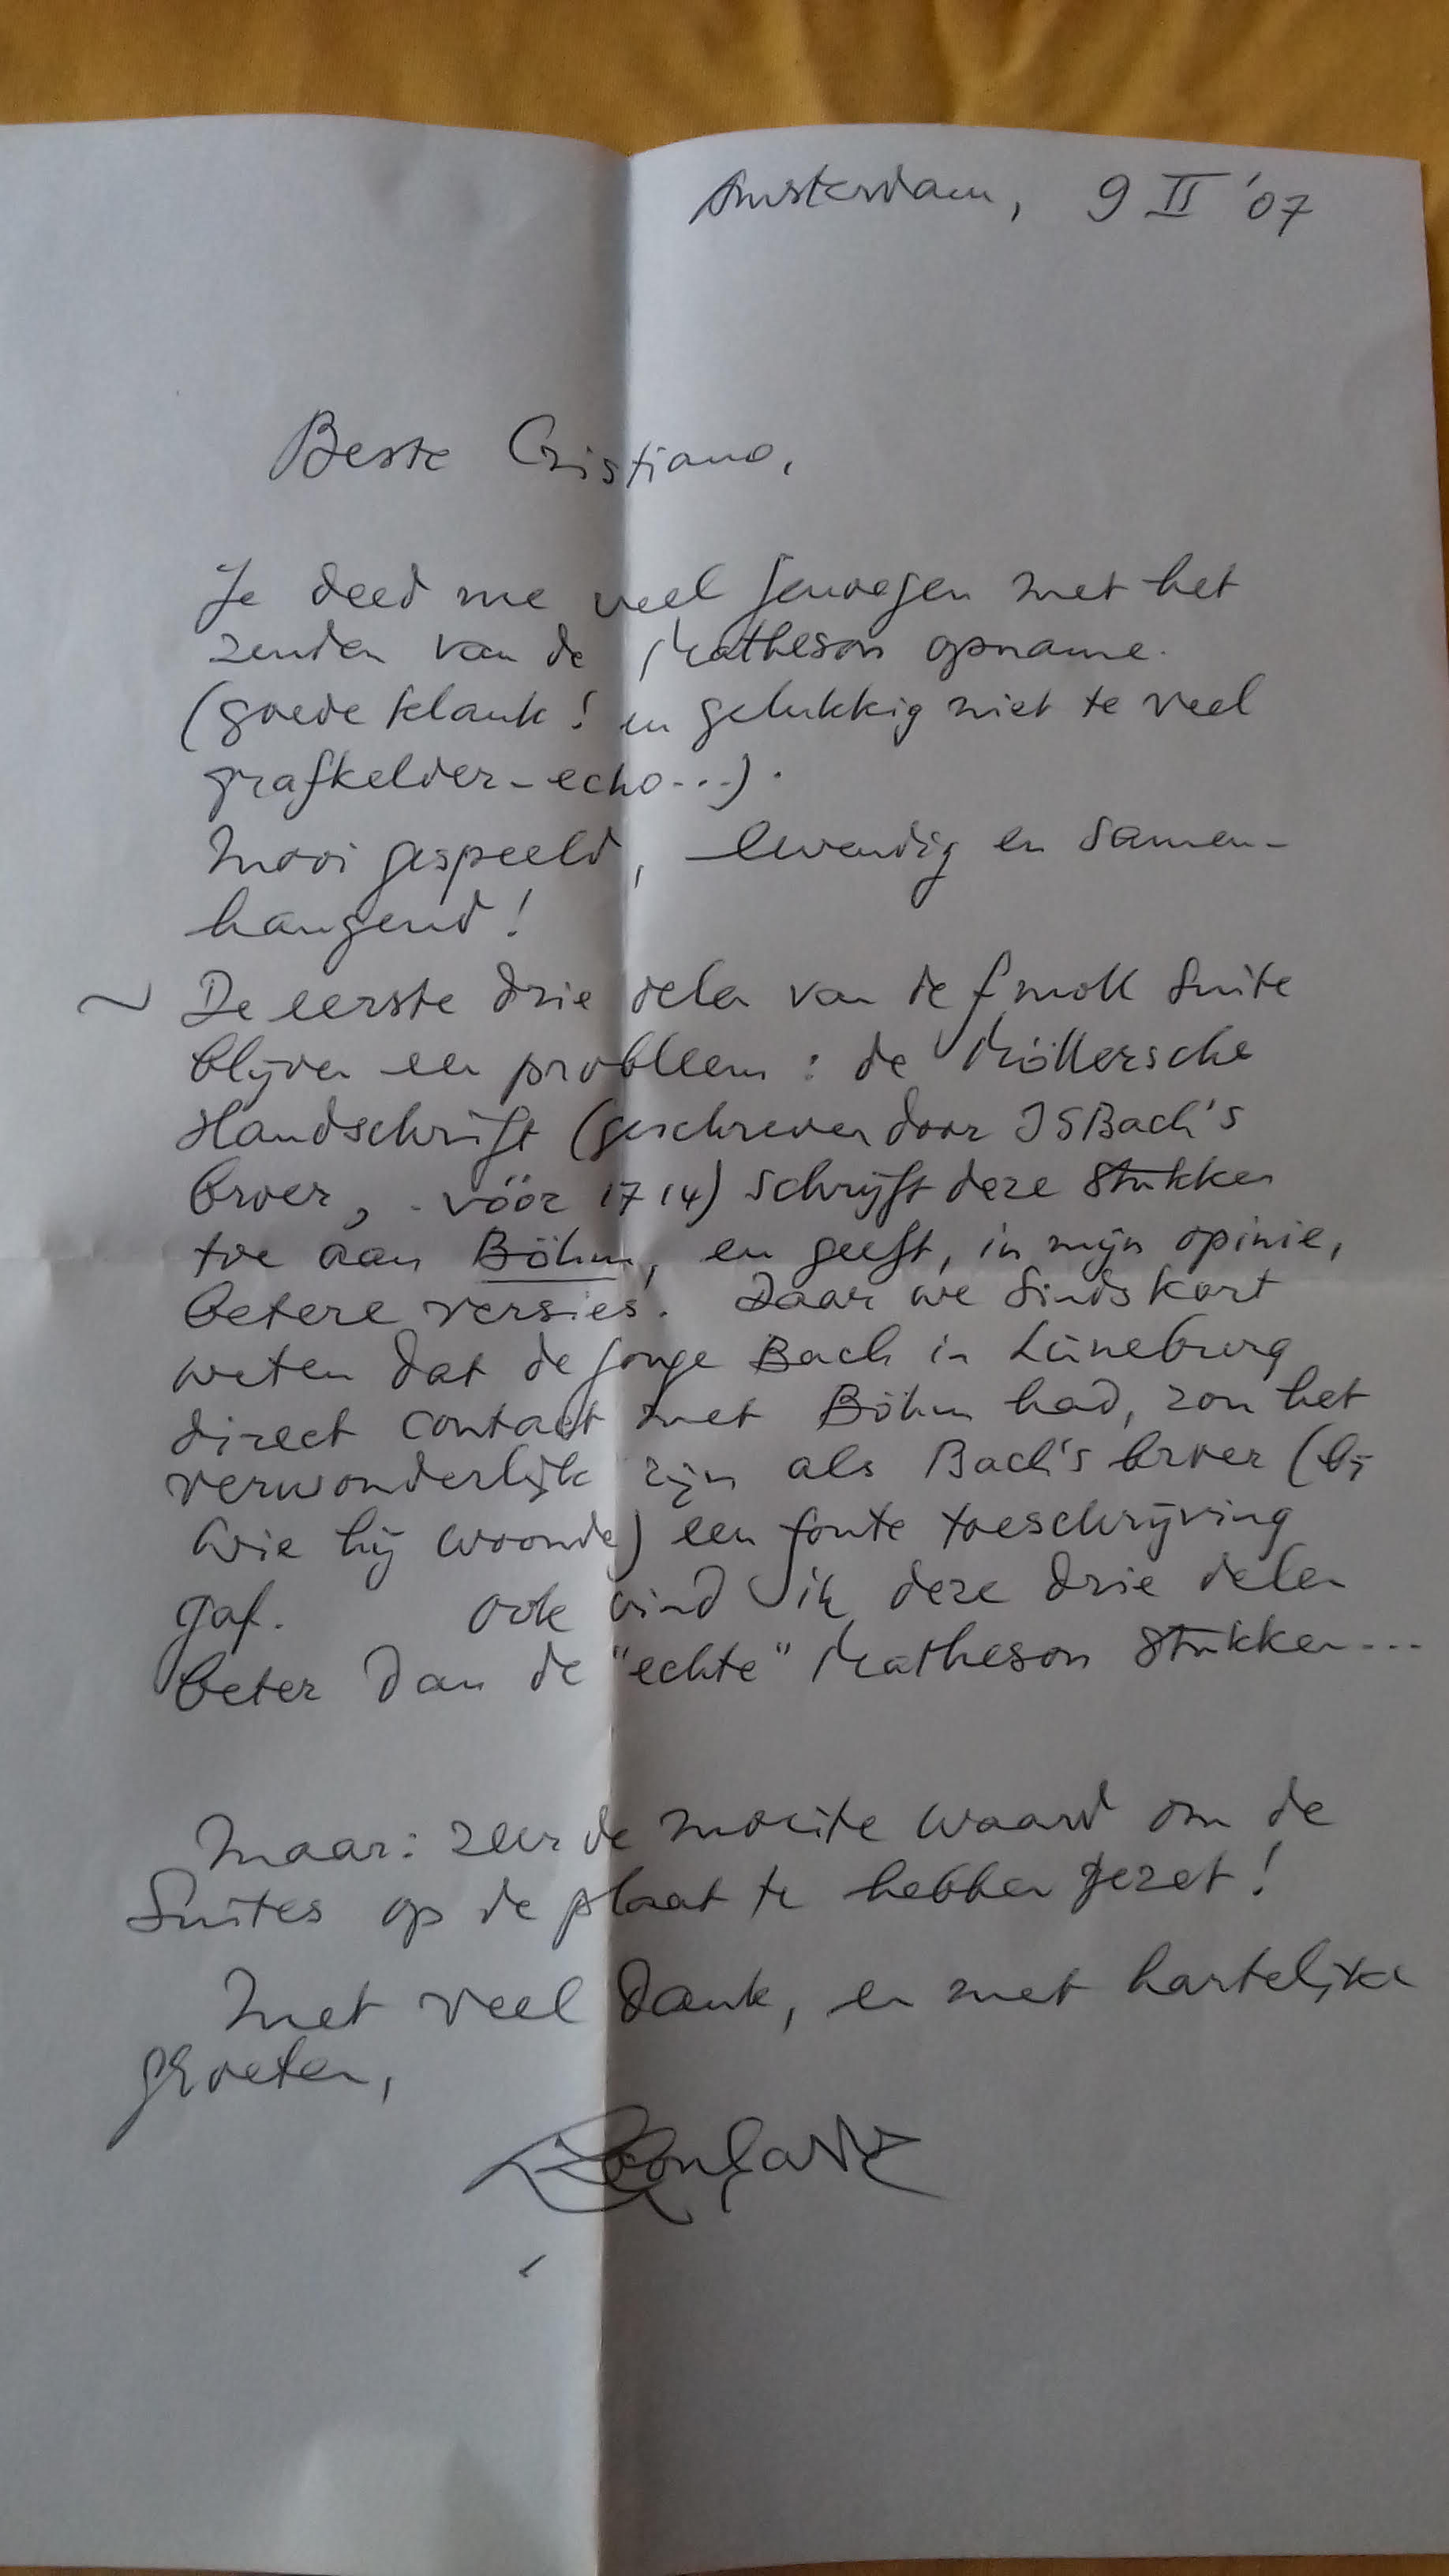 Amsterdam, 9 II '07
Beste Cristiano,
Je deed me veel genoegen met het
zenden van de Matheson opname.
(goede klank! en gelukkig niet te veel
grafkelder-echo...).
Mooi gespeeld, levendig en samen-
hangend!
~ De eerste drie delen van de f moll Suite
blijven een probleem: de Möllersche
Handschrift (geschreven door JSBach's
broer, vóór 1714) schrijft deze stukken
toe aan Böhm, en geeft, in mijn opinie,
betere versies. Daar we sindskort
weten dat de jonge Bach in Lüneburg
direct contact met Böhm had, zou het
verwonderlijk zijn als Bach's broer (bij
wie hij woonde) een foute toeschrijving
gaf. Ook vind ik deze drie delen
beter dan de "echte" Matheson stukken...
Maar: zeer de moeite waard om de
Suites op de plaat te hebben gezet!
Met veel dank, en met hartelijke
groeten,